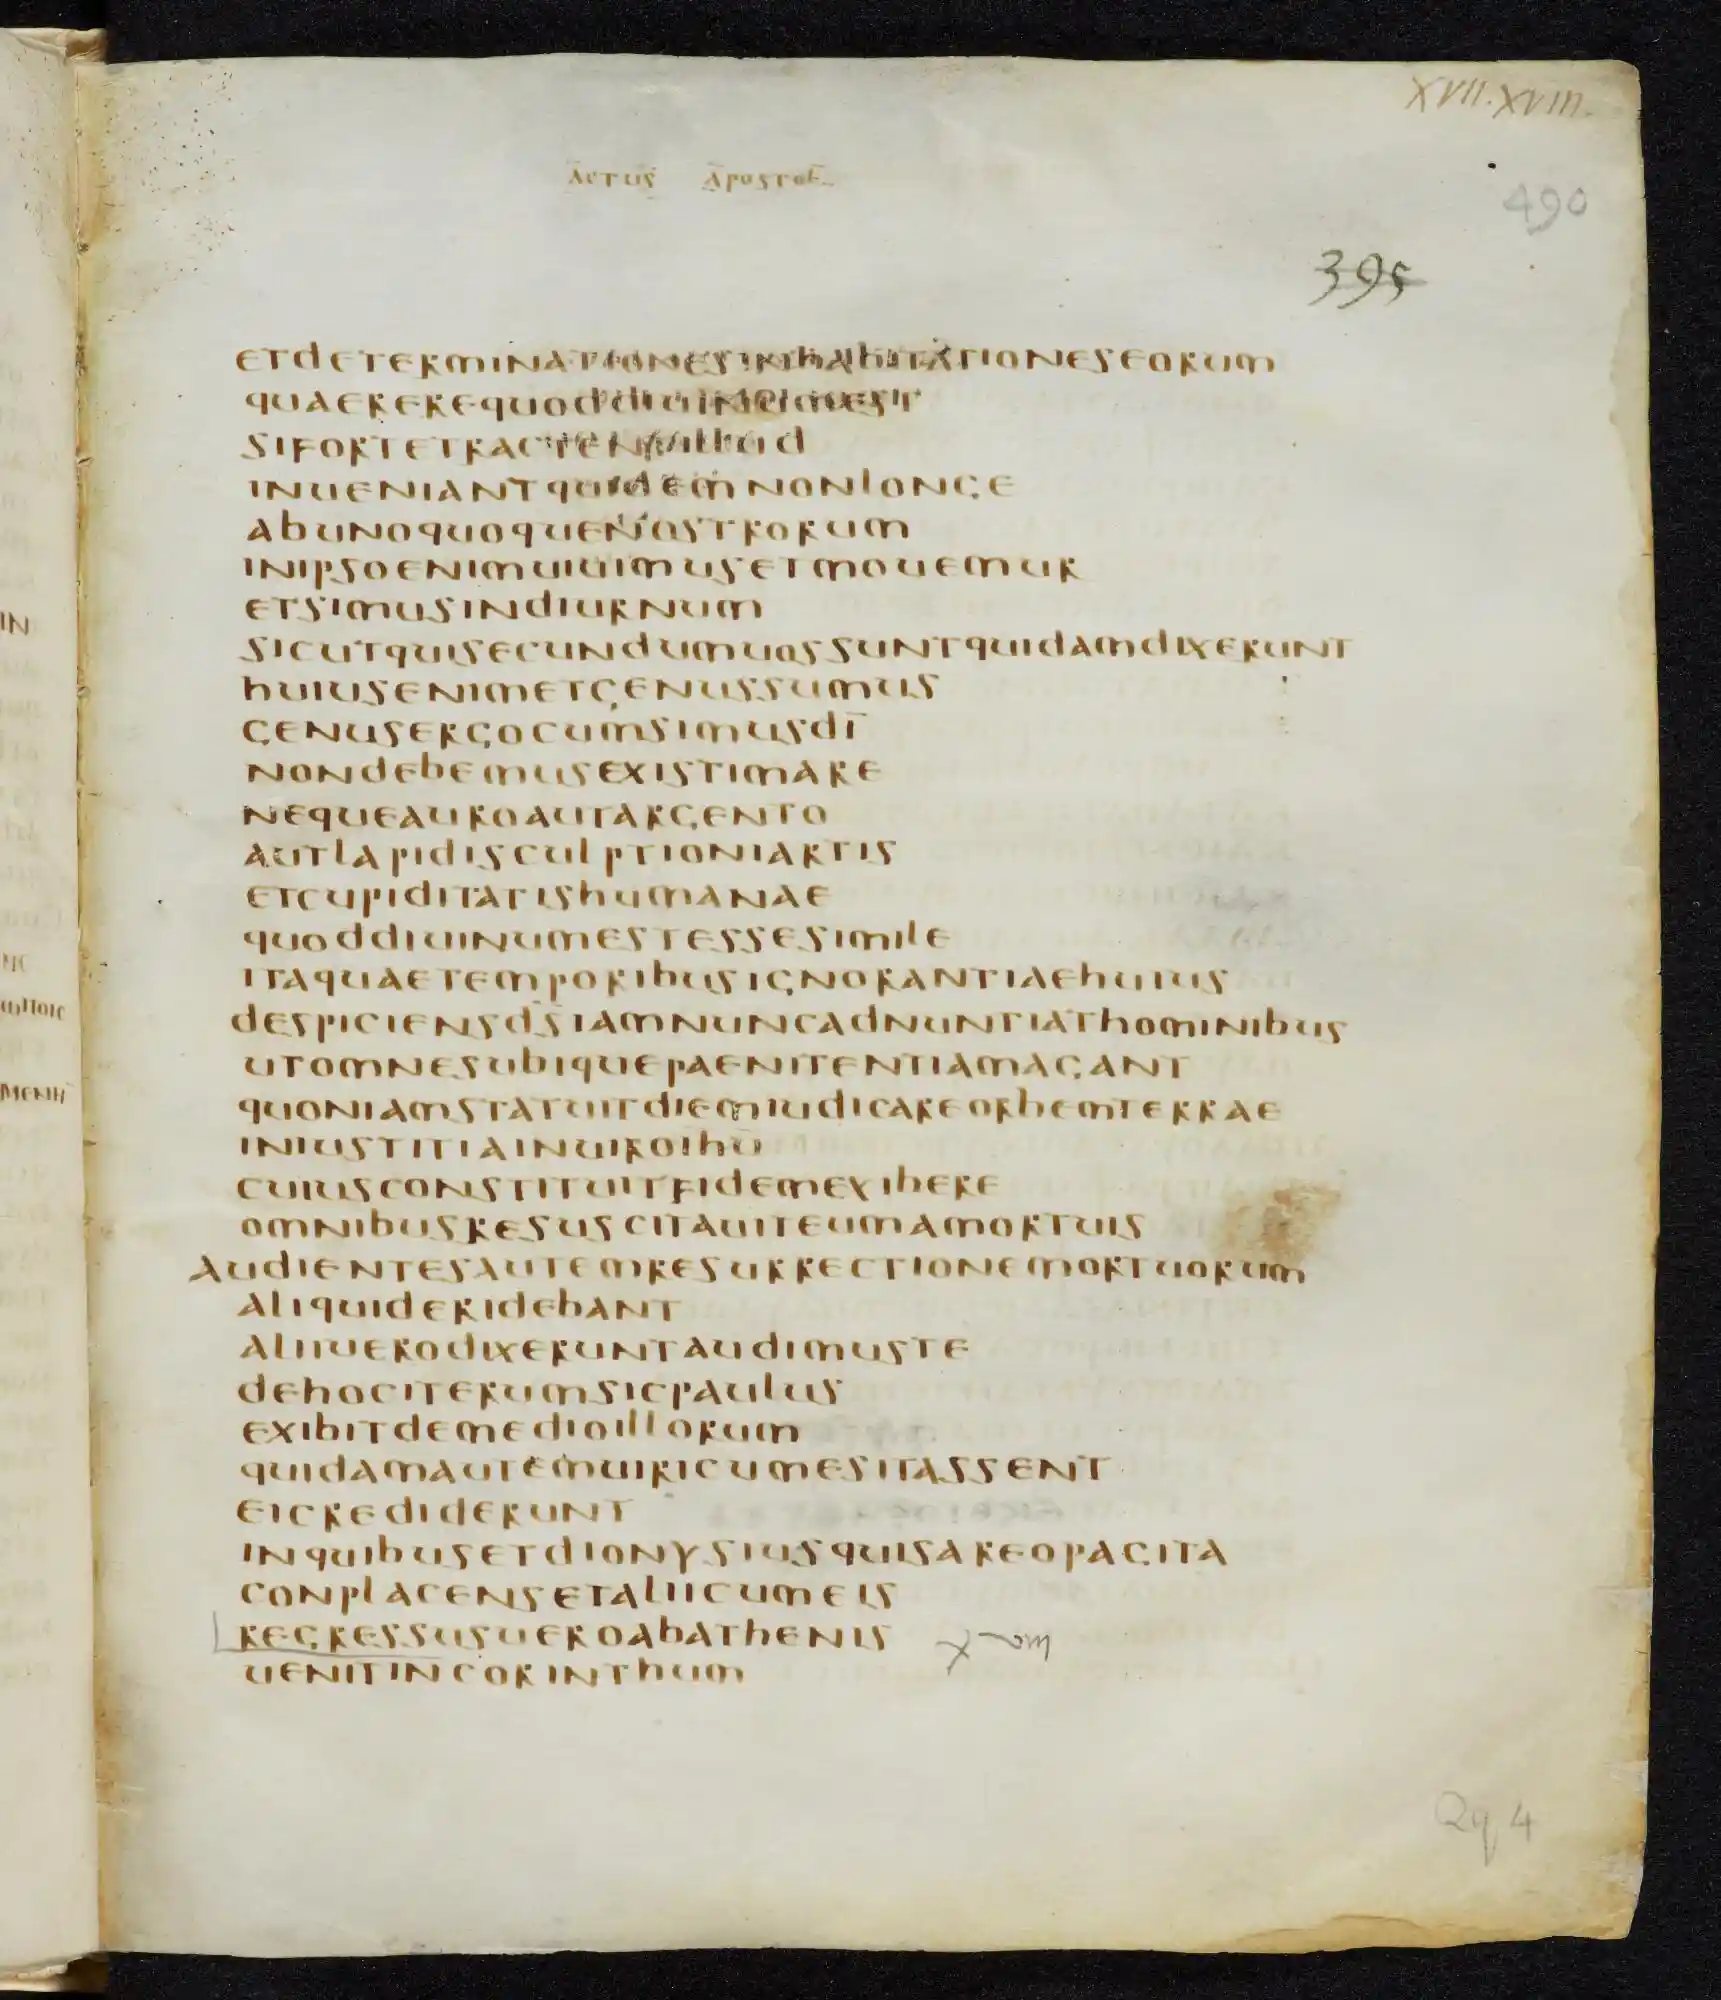 XVII. XVIII.
ACTUS APOSTOL
490
395
etdeterminationesinhabitationeseorum
quaererequoddiuinumest
sifortetractentillud
inueniantquidemnonlonge
abunoquoquenostrorum
inipsoenimuiuimusetmouemur
etsimusindiurnum
sicutquisecundumuossuntquidamdixerunt
huiusenimetgenussumus
genusergocumsimusdī
nondebemusexistimare
nequeauroautargento
autlapidisculptioniartis
etcupiditatishumanae
quoddiuinumestessesimile
itaquaetemporibusignorantiaehuius
despiciensds̄iamnuncadnuntiathominibus
utomnesubiquepaenitentiamagant
quoniamstatuitdiemiudicareorbemterrae
iniustitiainuiroihū
cuiusconstituitfidemexibere
omnibusresuscitauiteumamortuis
audientesautemresurrectionemortuorum
aliquideridebant
aliiuerodixeruntaudimuste
dehociterumsicpaulus
exibitdemedioillorum
quidamautemuiricumesitassent
eicrediderunt
inquibusetdionysiusquisareopagita
conplacensetaliicumeis
regressusueroabathenis
uenitincorinthum
Qq 4